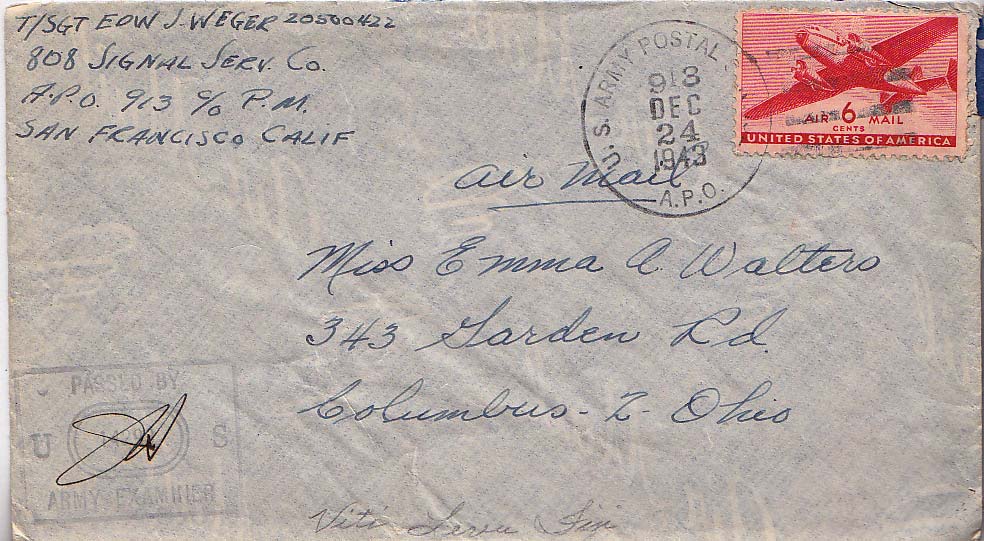 T/SGT EDW J. WEGER 20500422
808 SIGNAL SERV. CO.
A.P.O. 913 c/o P.M.
SAN FRANCISCO CALIF
U.S. ARMY POSTAL
913
DEC
24
1943
A.P.O.
AIR 6 MAIL
CENTS
UNITED STATES OF AMERICA
Air Mail
Miss Emma A. Walters
343 Garden Rd.
Columbus - 2 - Ohio
PASSED BY
U S
ARMY EXAMINER
Viti Levu Fiji